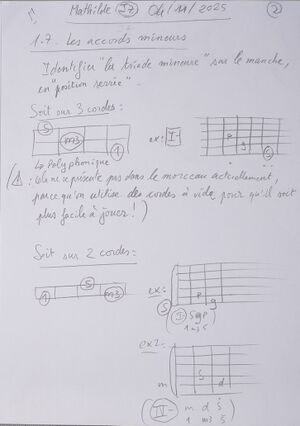 Mathilde (J7) 04/11/2025 (2)
1.7. Les accords mineurs
Identifier "la triade mineure" sur le manche,
en "position serrée".
Soit sur 3 cordes:
5
m3
1
ex: I-
p
g
6
Polyphonique
(⚠: ne se présente pas dans le morceau actuellement,
parce qu'on utilise des cordes à vide pour qu'il soit
plus facile à jouer!)
Soit sur 2 cordes:
5
1 m3
ex:
p g
S
I-
1 m3 5
ex2:
m
S
d
(IV- m d S
1 m3 5)